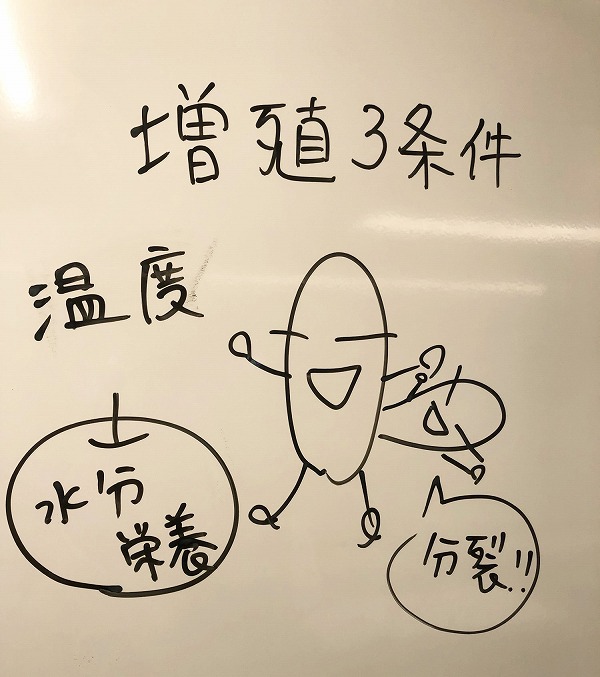 増殖3条件
温度
水分
栄養
分裂!!